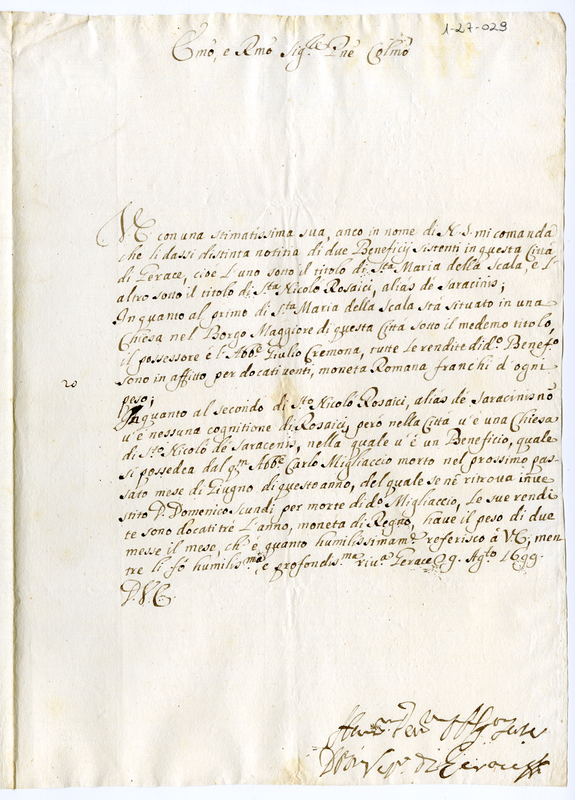 1-27-029
Emo, e Rmo Sigre Pne Colmo
VE con una stimatissima sua, anco in nome di N. S. mi comanda
che li dassi distinta notitia di due Beneficij sistenti in questa Città
di Gerace, cioe l'uno sotto il titolo di Sta Maria della Scala, e l'
altro sotto il titolo di Sto Nicolo Rosaici, alias de Saracinis;
In quanto al primo di S.ta Maria della Scala stà situato in una
Chiesa nel Borgo Maggiore di questa Città sotto il medemo titolo,
il possessore è l'Abbe Giulio Cremona, tutte le rendite di do Benefo
sono in affitto per docati venti, moneta Romana franchi d'ogni
20
peso;
Inquanto al secondo di Sto Nicolo Rosaici, alias de Saracinis nõ
v'è nessuna cognitione di Rosaici, però nella Città v'è una Chiesa
di S.to Nicolò de Saracenis, nella quale v'è un Beneficio, quale
si possedea dal qm Abbe Carlo Migliaccio morto nel prossimo pas-
sato mese di Giugno di quest'anno, del quale se nè ritrova inve
stito D. Domenico Scundi per morte di do Migliaccio, Le sue rendi
te sono docati trè l'anno, moneta di Regno, have il peso di due
messe il mese, ch'è quanto humilissimame referisco à VE; men
tre li fò humilissma, e profondisma riva Gerace 29. Agto 1699.
D. V. E.
di Gerace